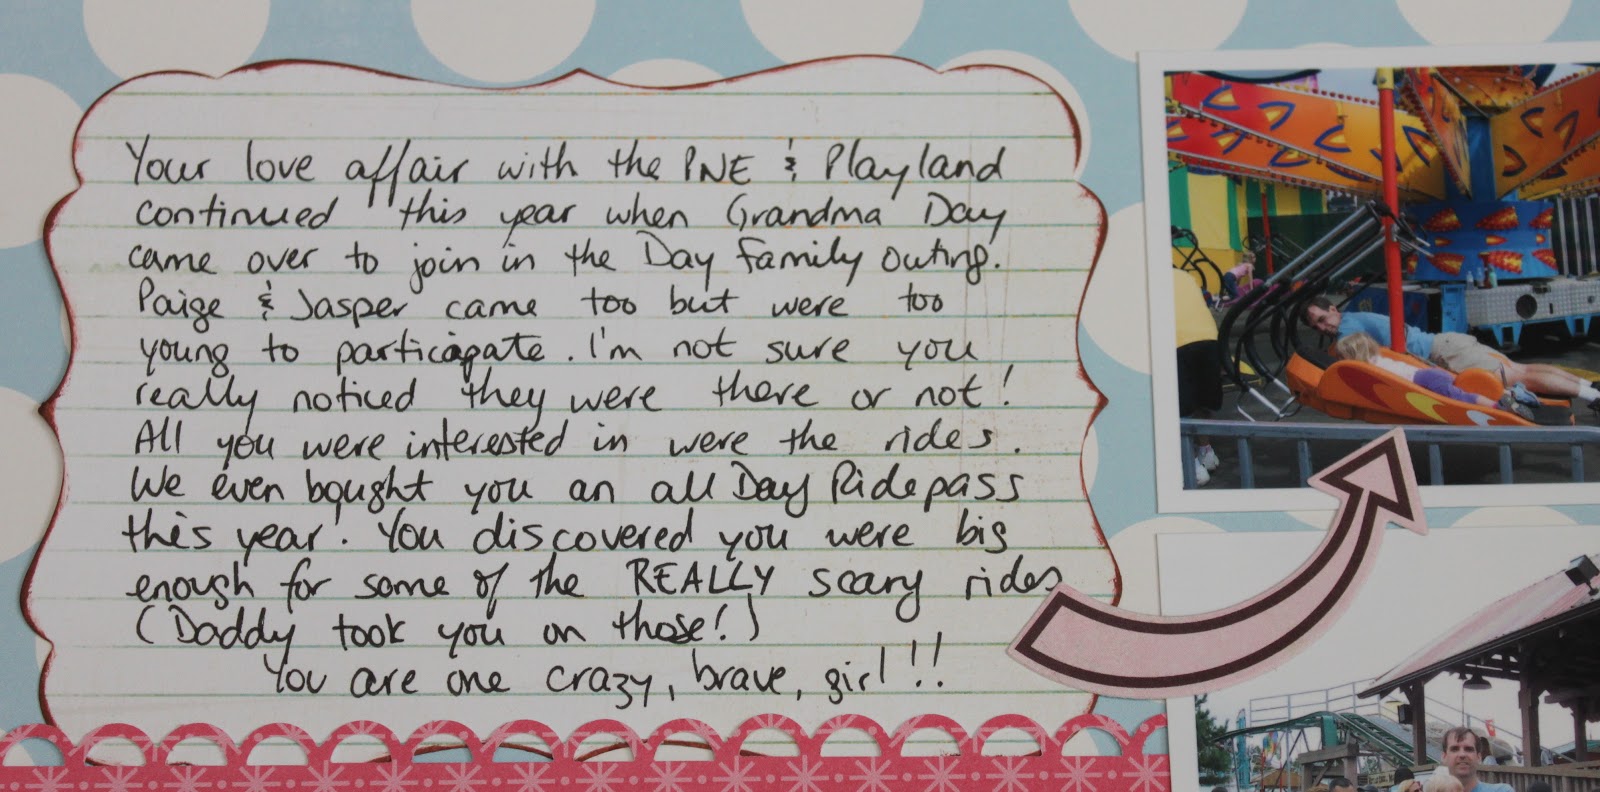 Your love affair with the PNE & Playland
continued this year when Grandma Day
came over to join in the Day Family outing.
Paige & Jasper came too but were too
young to participate. I'm not sure you
really noticed they were there or not!
All you were interested in were the rides.
We even bought you an all Day Ride pass
this year! You discovered you were big
enough for some of the REALLY scary rides
(Daddy took you on those!)
You are one crazy, brave, girl!!